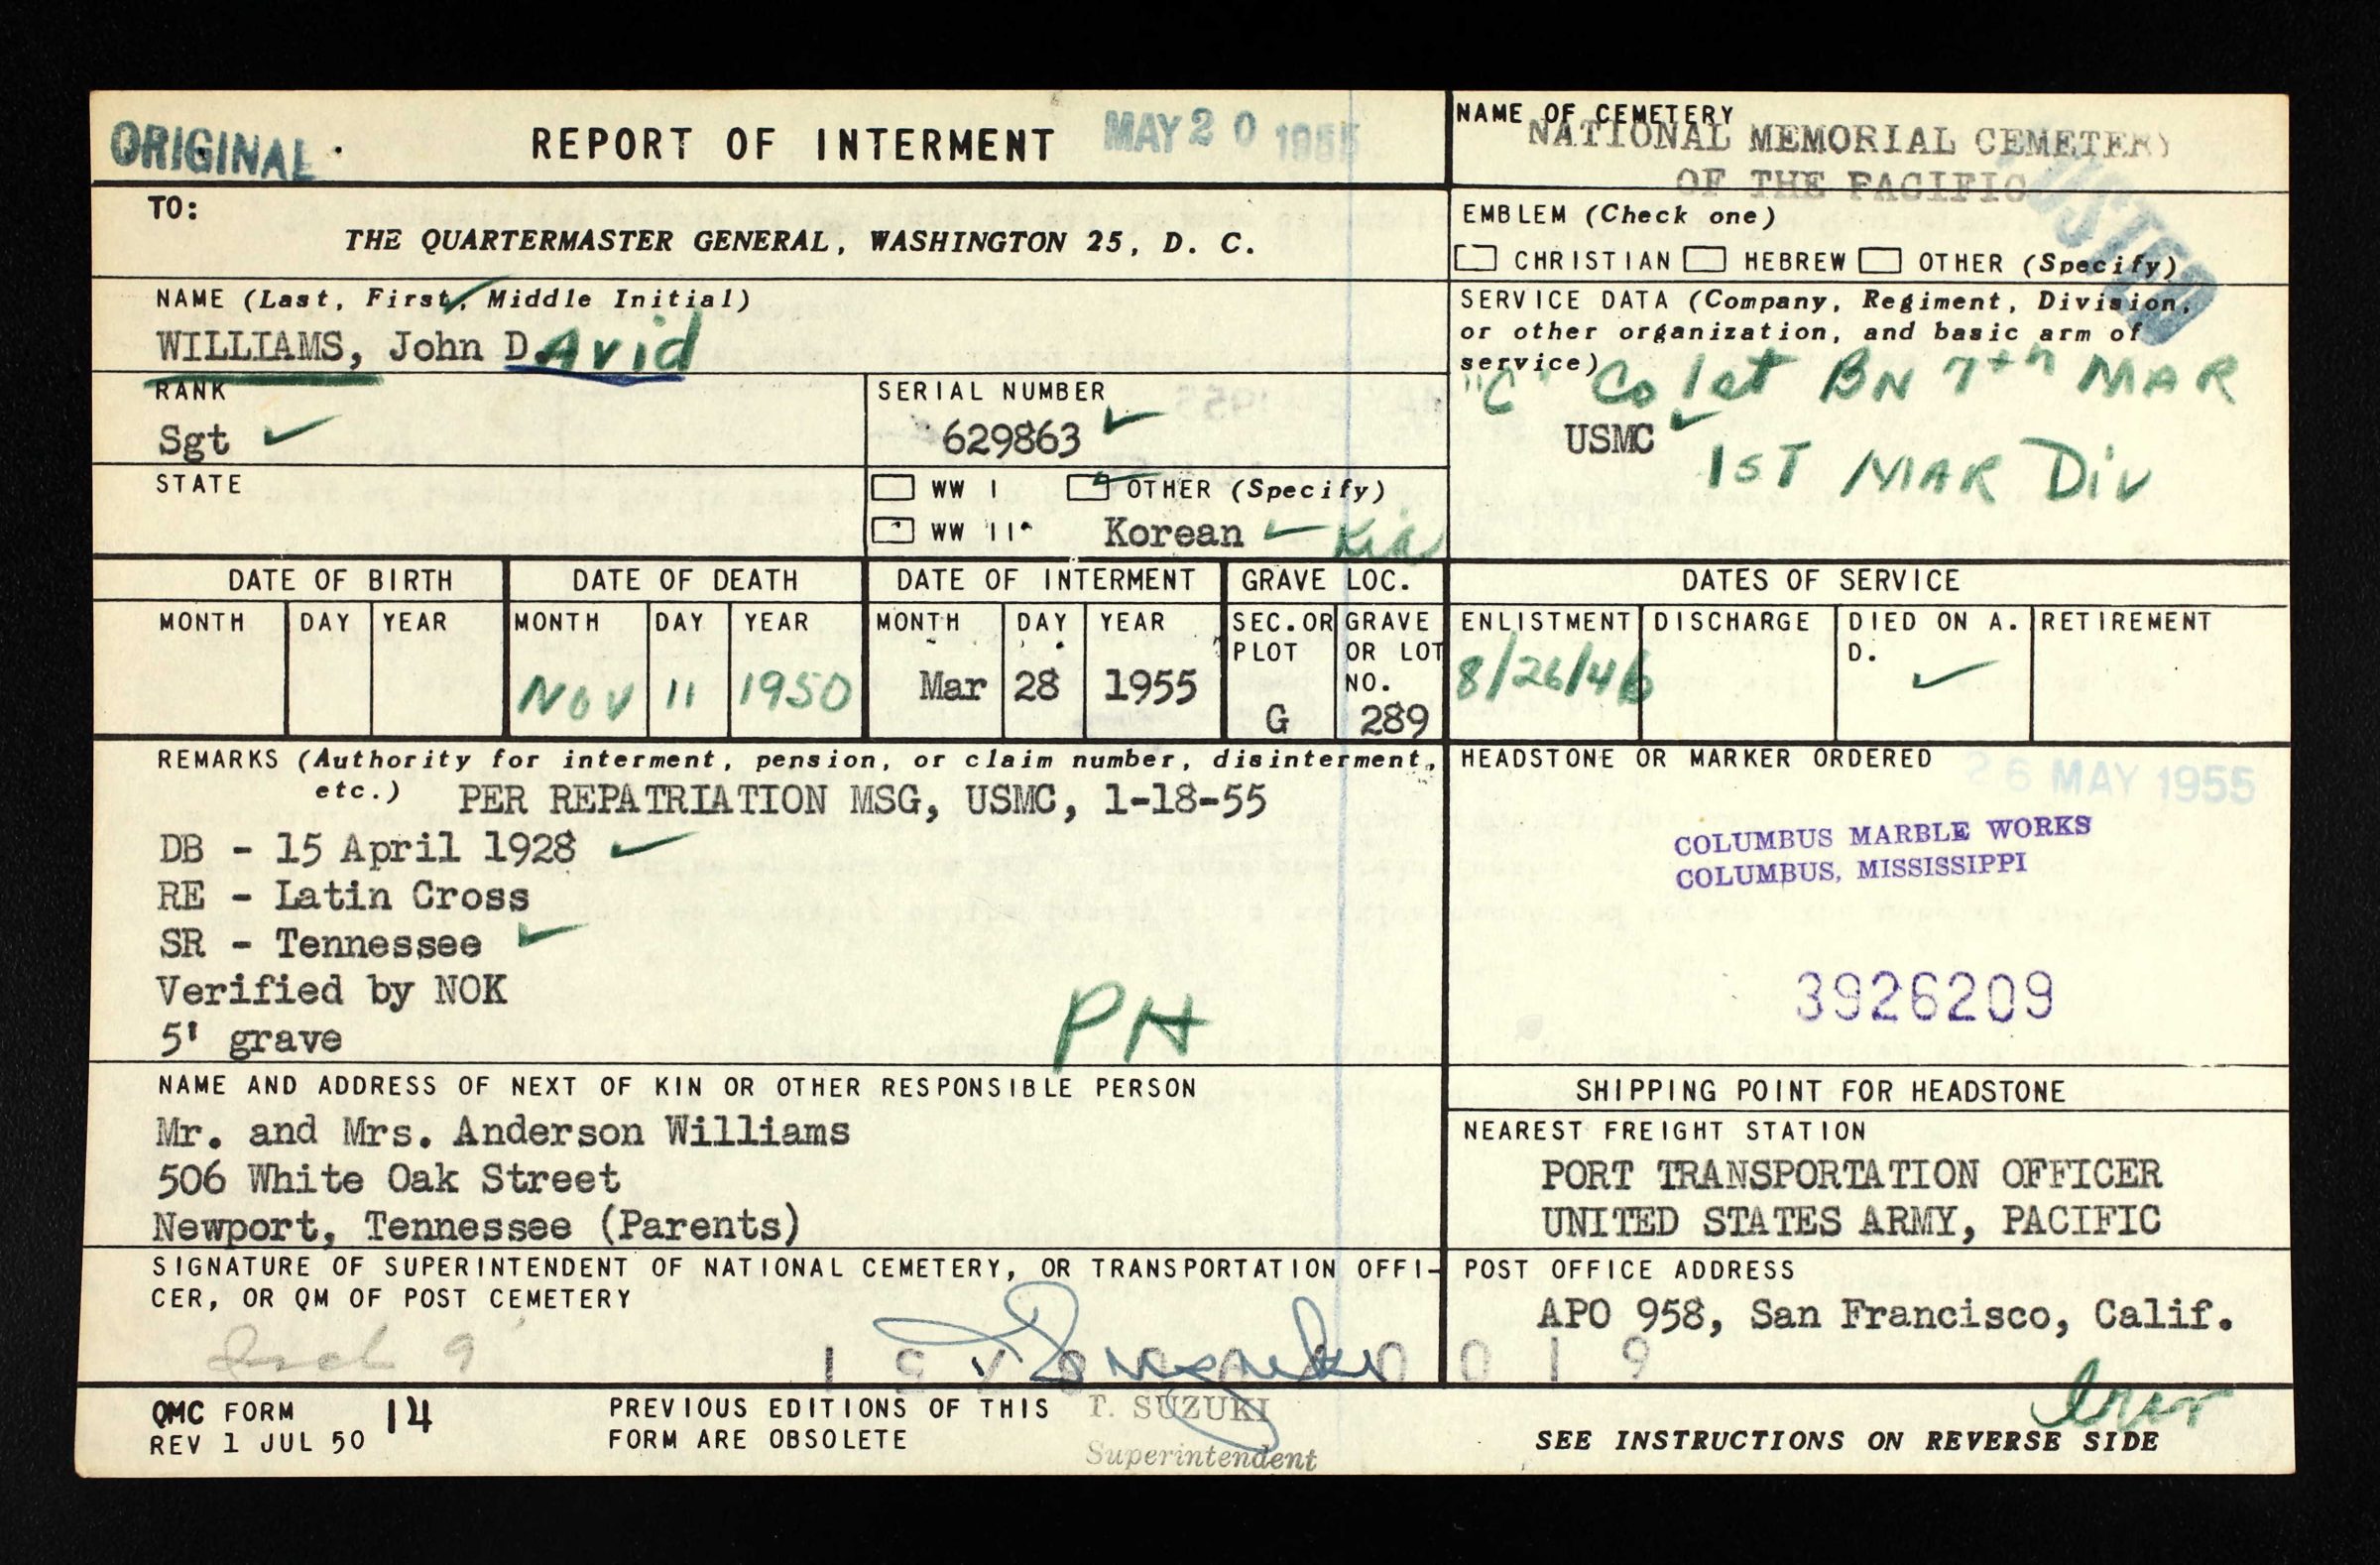 ORIGINAL
REPORT OF INTERMENT
MAY 20 1955
NAME OF CEMETERY
NATIONAL MEMORIAL CEMETERY
OF THE PACIFIC
TO:
THE QUARTERMASTER GENERAL, WASHINGTON 25, D. C.
EMBLEM (Check one)
CHRISTIAN HEBREW OTHER (Specify)
NAME (Last, First, Middle Initial)
WILLIAMS, John D.Avid
SERVICE DATA (Company, Regiment, Division,
or other organization, and basic arm of
service)
"C" Co 1st BN 7th MAR
USMC
1ST MAR Div
RANK
Sgt
SERIAL NUMBER
629863
STATE
WW I OTHER (Specify)
WW II Korean Kia
DATE OF BIRTH DATE OF DEATH DATE OF INTERMENT GRAVE LOC. DATES OF SERVICE
MONTH DAY YEAR MONTH DAY YEAR MONTH DAY YEAR SEC.OR PLOT GRAVE OR LOT NO. ENLISTMENT DISCHARGE DIED ON A. D. RETIREMENT
Nov 11 1950 Mar 28 1955 G 289 8/26/46
REMARKS (Authority for interment, pension, or claim number, disinterment,
etc.) PER REPATRIATION MSG, USMC, 1-18-55
DB - 15 April 1928
RE - Latin Cross
SR - Tennessee
Verified by NOK
5' grave
PH
HEADSTONE OR MARKER ORDERED
26 MAY 1955
COLUMBUS MARBLE WORKS
COLUMBUS, MISSISSIPPI
3926209
NAME AND ADDRESS OF NEXT OF KIN OR OTHER RESPONSIBLE PERSON
Mr. and Mrs. Anderson Williams
506 White Oak Street
Newport, Tennessee (Parents)
SHIPPING POINT FOR HEADSTONE
NEAREST FREIGHT STATION
PORT TRANSPORTATION OFFICER
UNITED STATES ARMY, PACIFIC
SIGNATURE OF SUPERINTENDENT OF NATIONAL CEMETERY, OR TRANSPORTATION OFFI-
CER, OR QM OF POST CEMETERY
T. SUZUKI
Superintendent
POST OFFICE ADDRESS
APO 958, San Francisco, Calif.
QMC FORM 14
REV 1 JUL 50
PREVIOUS EDITIONS OF THIS
FORM ARE OBSOLETE
SEE INSTRUCTIONS ON REVERSE SIDE